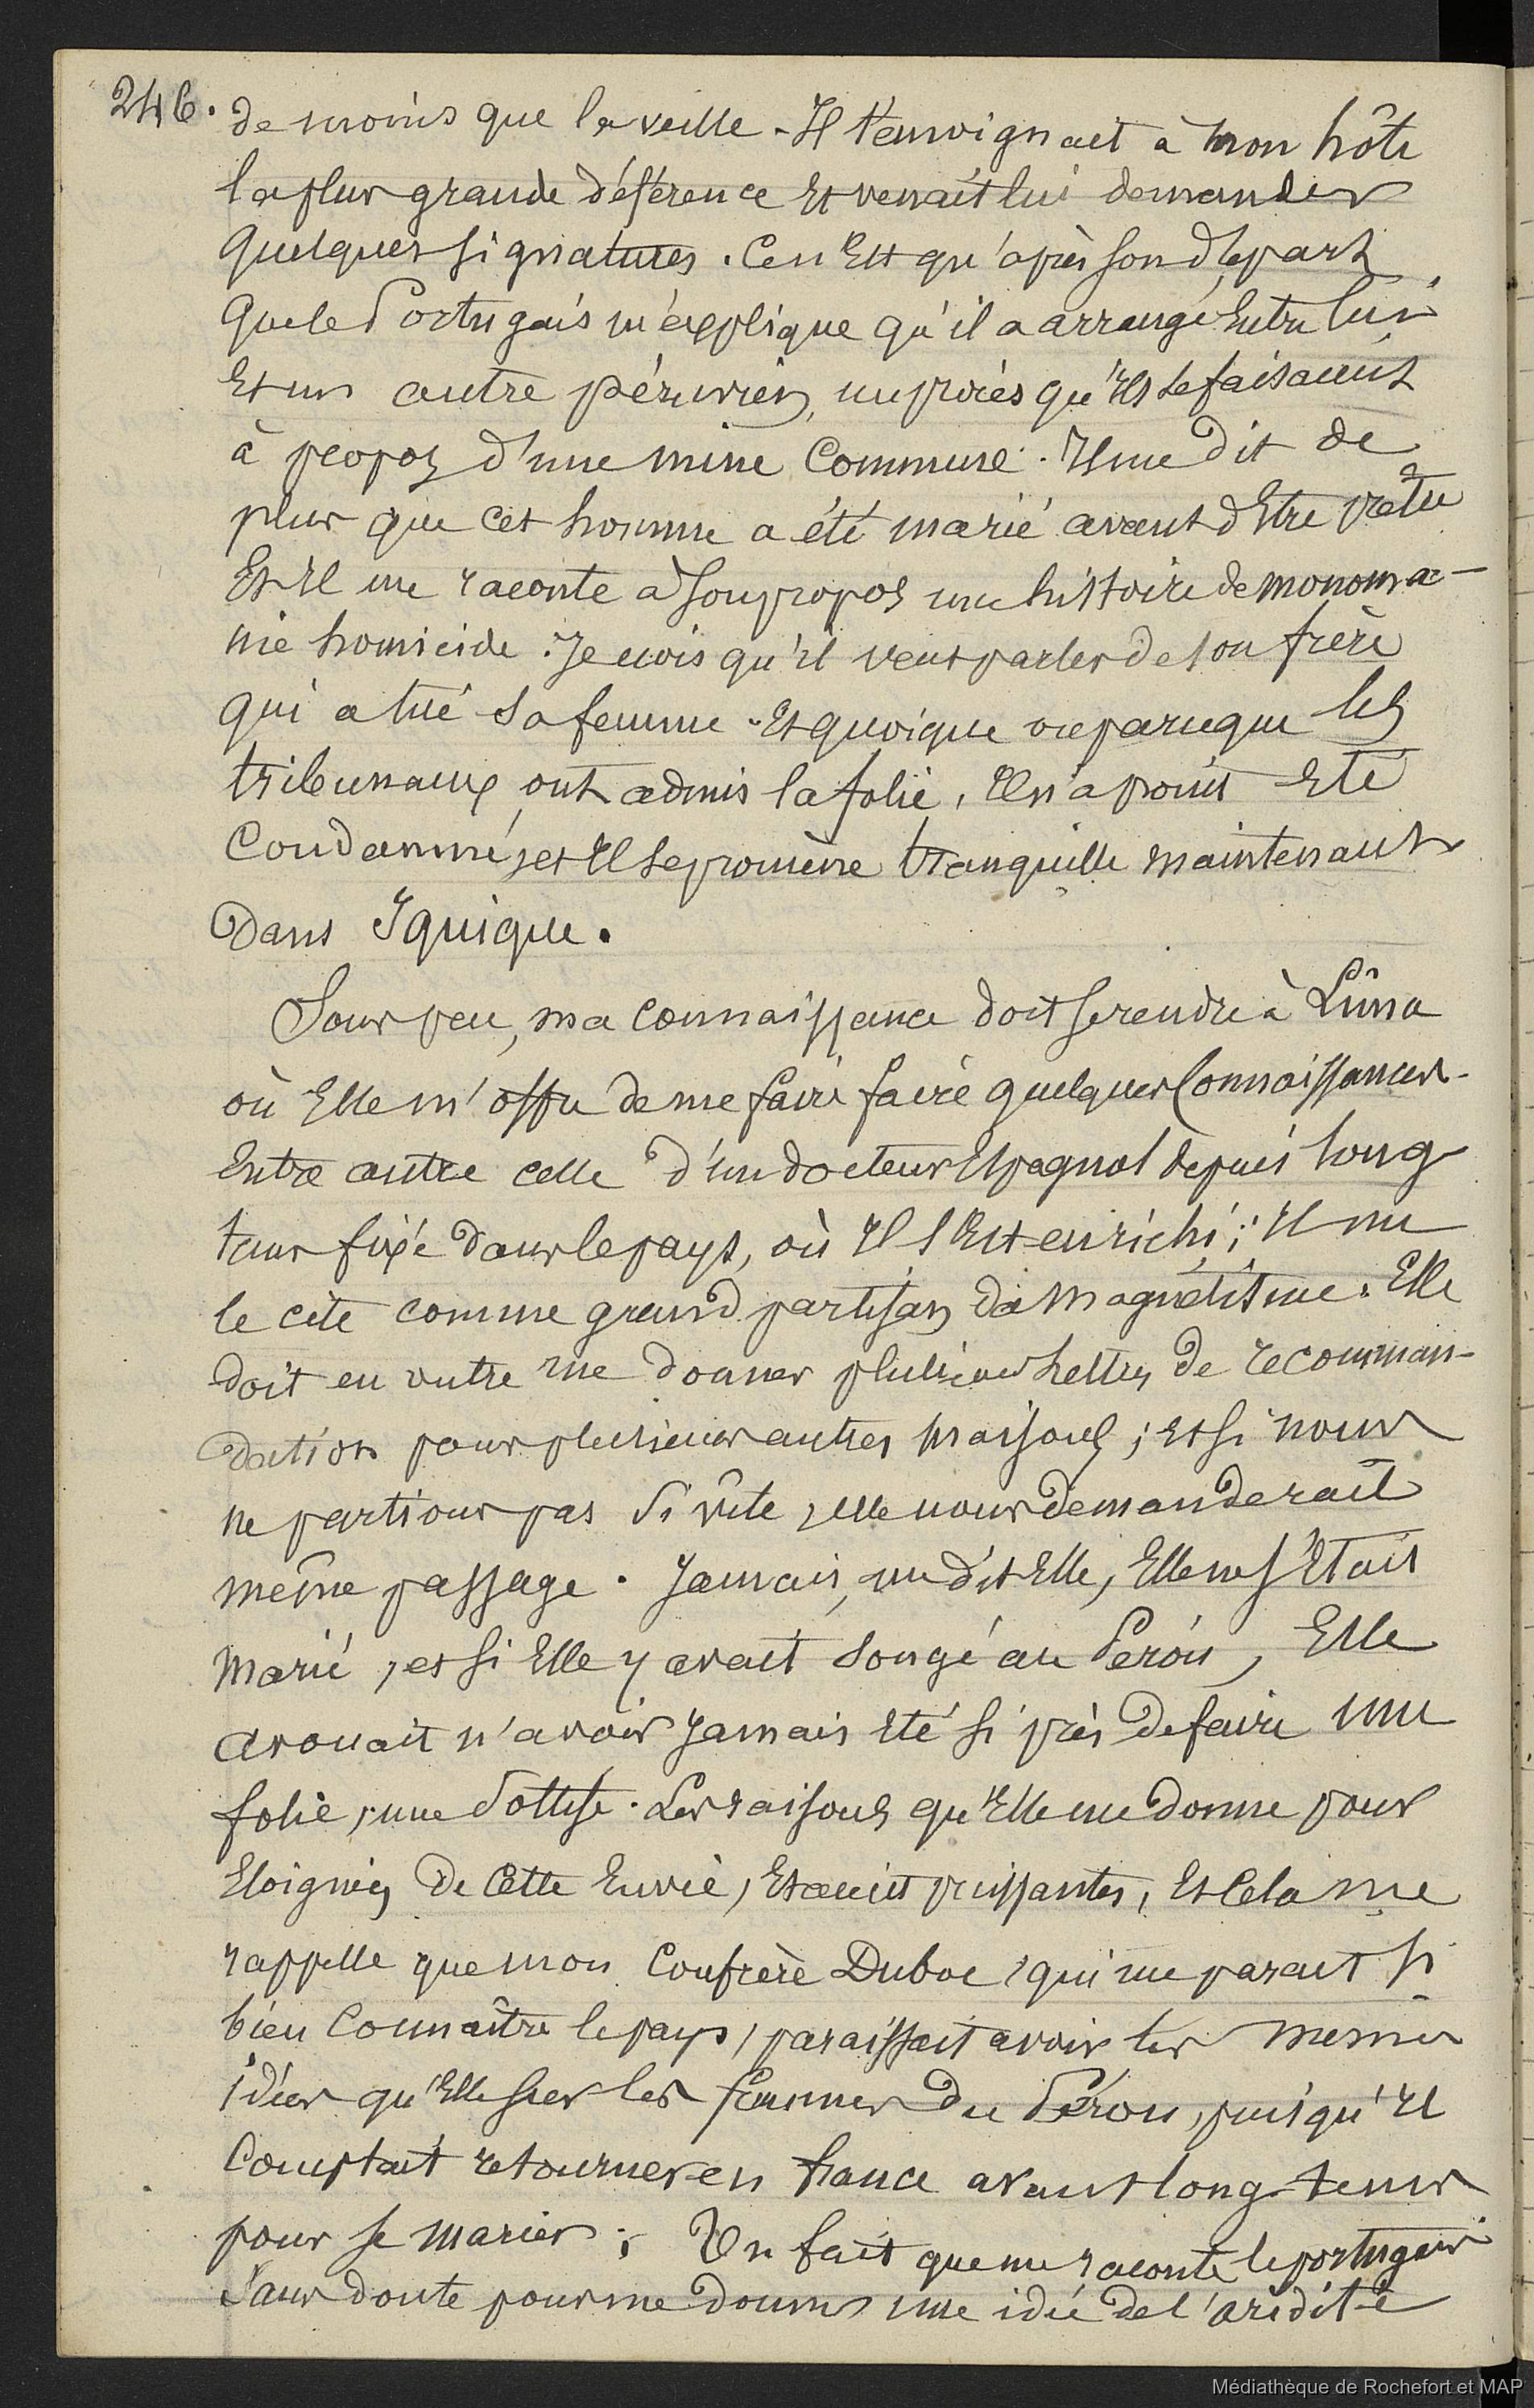 246. de moins que la veille - Il temoignait à mon hôte
la plus grande déférence Et venait lui demander
quelques signatures. Ce n'Est qu'après son départ
que le Portugais m'explique qu'il a arrangé, Entre lui
Et un autre péruvien, un procès qu'Ils se faisaient
à propos d'une mine Commune. Il me dit de
plus que cet homme a été marié avant d'Etre prêtre
Et Il me raconte à son propos une histoire de monoma-
nie homicide. Je crois qu'il veut parler de son frère
qui a tué sa femme. Et quoique parceque les
tribunaux ont admis la folie, Il n'a point Eté
Condamné, et Il se promène tranquille maintenant
Dans Iquique.
Sous peu, ma connaissance doit se rendre à Lima
où Elle m'offre de me faire faire quelques Connaissances -
Entre autre celle d'un docteur Espagnol depuis long
tems fixé dans le pays, où Il s'Est enrichi ; Il me
le cite comme grand partisan du Magnétisme. Elle
doit en outre me donner plusieurs lettres de recomman-
dation pour plusieurs autres maisons ; Et si nous
ne partions pas si vîte, elle nous demanderait
même passage. Jamais, me dit Elle, Elle ne s'Etait
Marié, et si Elle y avait songé au Pérou, Elle
avouait n'avoir Jamais Eté si près de faire une
folie, une sottise. Les raisons qu'Elle me donne pour
Eloigner de Cette Envie, Etaient puissantes, Et Cela me
rappelle que mon Confrère Duboc, qui me parait si
bien Connaître le pays, paraissait avoir les mêmes
idées qu'Elle sur les femmes du Pérou, puisqu'Il
Comptait retourner en france avant long-tems
pour se marier ; Un fait que me raconte le portugais
sans doute pour me donner une idée de l'aridité
Médiathèque de Rochefort et MAP